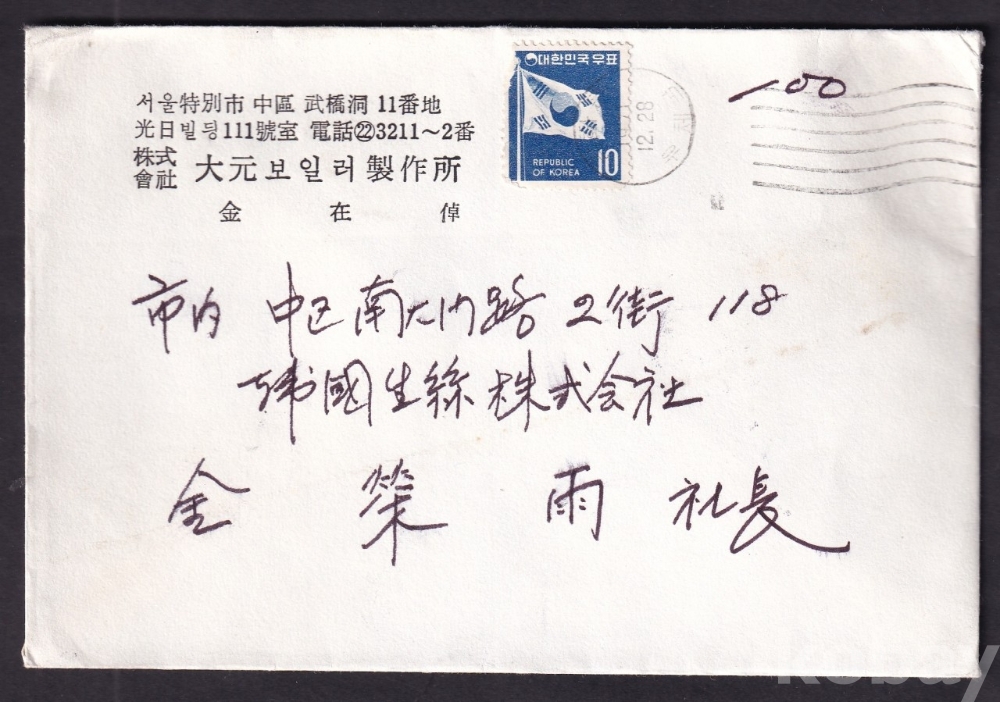 서울特別市 中區 武橋洞 11番地
光日빌딍111號室 電話㉒3211~2番
株式會社 大元보일러製作所
金 在 倬
大한민국우표
REPUBLIC
OF KOREA
10
12. 28
100
市内 中区 南大门路 2街 118
韓國生絲株式会社
金 榮 雨 社長
kobay